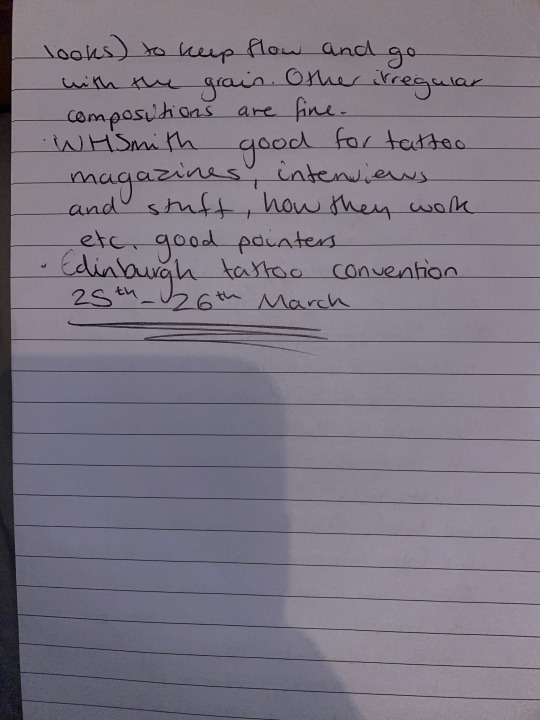 looks) to keep flow and go
with the grain. Other irregular
compositions are fine.
· WHSmith good for tattoo
magazines, interviews
and stuff, how they work
etc. good pointers
· Edinburgh tattoo convention
25th - 26th March